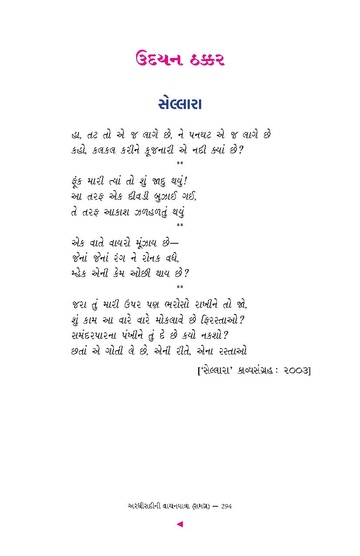 ઉદયન ઠક્કર
સેલ્લારા
હા, તટ તો એ જ લાગે છે, ને પનઘટ એ જ લાગે છે
કહો, કલકલ કરીને કૂજનારી એ નદી ક્યાં છે?
**
ફૂંક મારી ત્યાં તો શું જાદુ થયું!
આ તરફ એક દીવડી બુઝાઈ ગઈ,
તે તરફ આકાશ ઝળહળતું થયું
**
એક વાતે વાયરો મૂંઝાય છે—
જેનાં જેનાં રંગ ને રોનક વધે,
મ્હેક એની કેમ ઓછી થાય છે?
**
જરા તું મારી ઉપર પણ ભરોસો રાખીને તો જો,
શું કામ આ વારે વારે મોકલાવે છે ફિરસ્તાઓ?
સમંદરપારના પંખીને તું દે છે કયો નકશો?
છતાં એ ગોતી લે છે, એની રીતે, એના રસ્તાઓ
['સેલ્લારા' કાવ્યસંગ્રહ : ૨૦૦૩]
અરધીસદીની વાચનયાત્રા (સમગ્ર) — 294